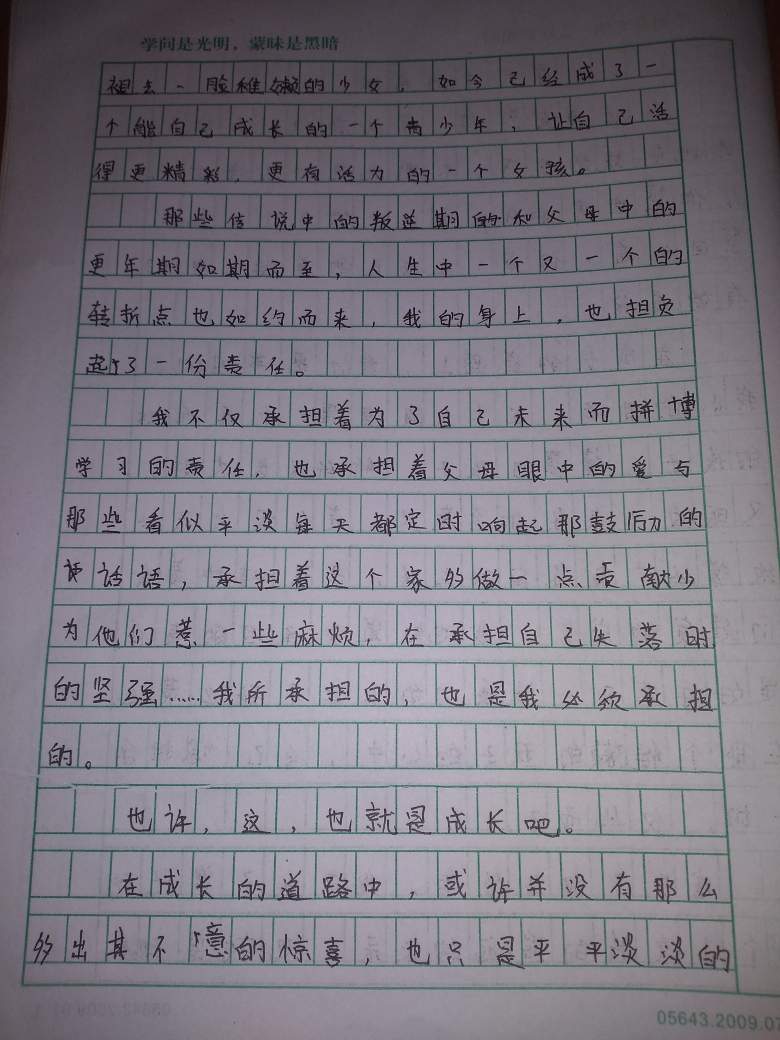 学问是光明，蒙昧是黑暗
褪去一脸稚嫩的少女，如今已经成了一
个能自己成长的一个青少年，让自己活
得更精彩，更有活力的一个女孩。
那些传说中的叛逆期的和父母中的
更年期如期而至，人生中一个又一个的
转折点也如约而来，我的身上，也担负
起了一份责任。
我不仅承担着为了自己未来而拼博
学习的责任，也承担着父母眼中的爱与
那些看似平淡每天都定时响起那鼓励的
话语，承担着这个家多做一点贡献少
为他们惹一些麻烦，在承担自己失落时
的坚强……我所承担的，也是我必须承担
的。
也许，这，也就是成长吧。
在成长的道路中，或许并没有那么
多出其不意的惊喜，也只是平平淡淡的
05643.2009.07